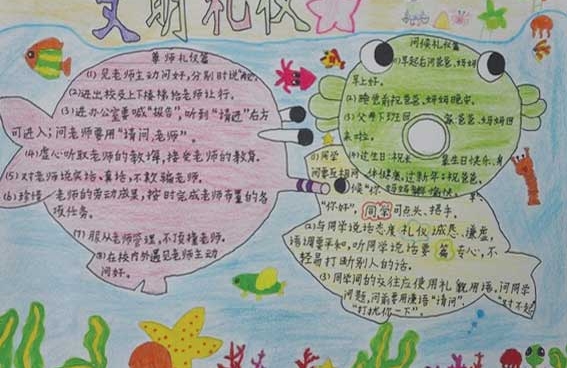 文明礼仪
尊师礼仪篇
(1)见老师主动问好,分别时说"
(2)进出校及上下楼梯给老师让行。
(3)进办公室要喊"报告",听到"请进"后方
可进入;问老师要用"请问,老师"。
(4)虚心听取老师的教悔,接受老师的教育。
(5)对老师说实话、真话,不欺骗老师。
(6)珍惜老师的劳动成果,按时完成老师布置的各
项任务。
(7)服从老师管理,不顶撞老师。
(8)在校内外遇见老师主动
问好。
问候礼仪篇
(1)早起后问爸爸、妈妈
早上好。
(2)睡觉前祝爸爸、妈妈晚安。
(3)父母下班回
爸爸、妈妈回
来啦。
(4)过生日:祝
生日快乐、身
体健康。过新年:祝爸爸、
妈妈新年愉快。
(1)同学
间要互相问
候"你早"、
"你好",
同学
间点头、招手。
(2)与同学说话态度礼仪诚恳、谦虚,
语调要平和,听同学说话要专心,不
篇
轻易打断别人的话。
(3)同学间的交往应使用礼貌用语,问同学
问题,问前要用谦语"请问"、
"对不起
"打扰你一下"。